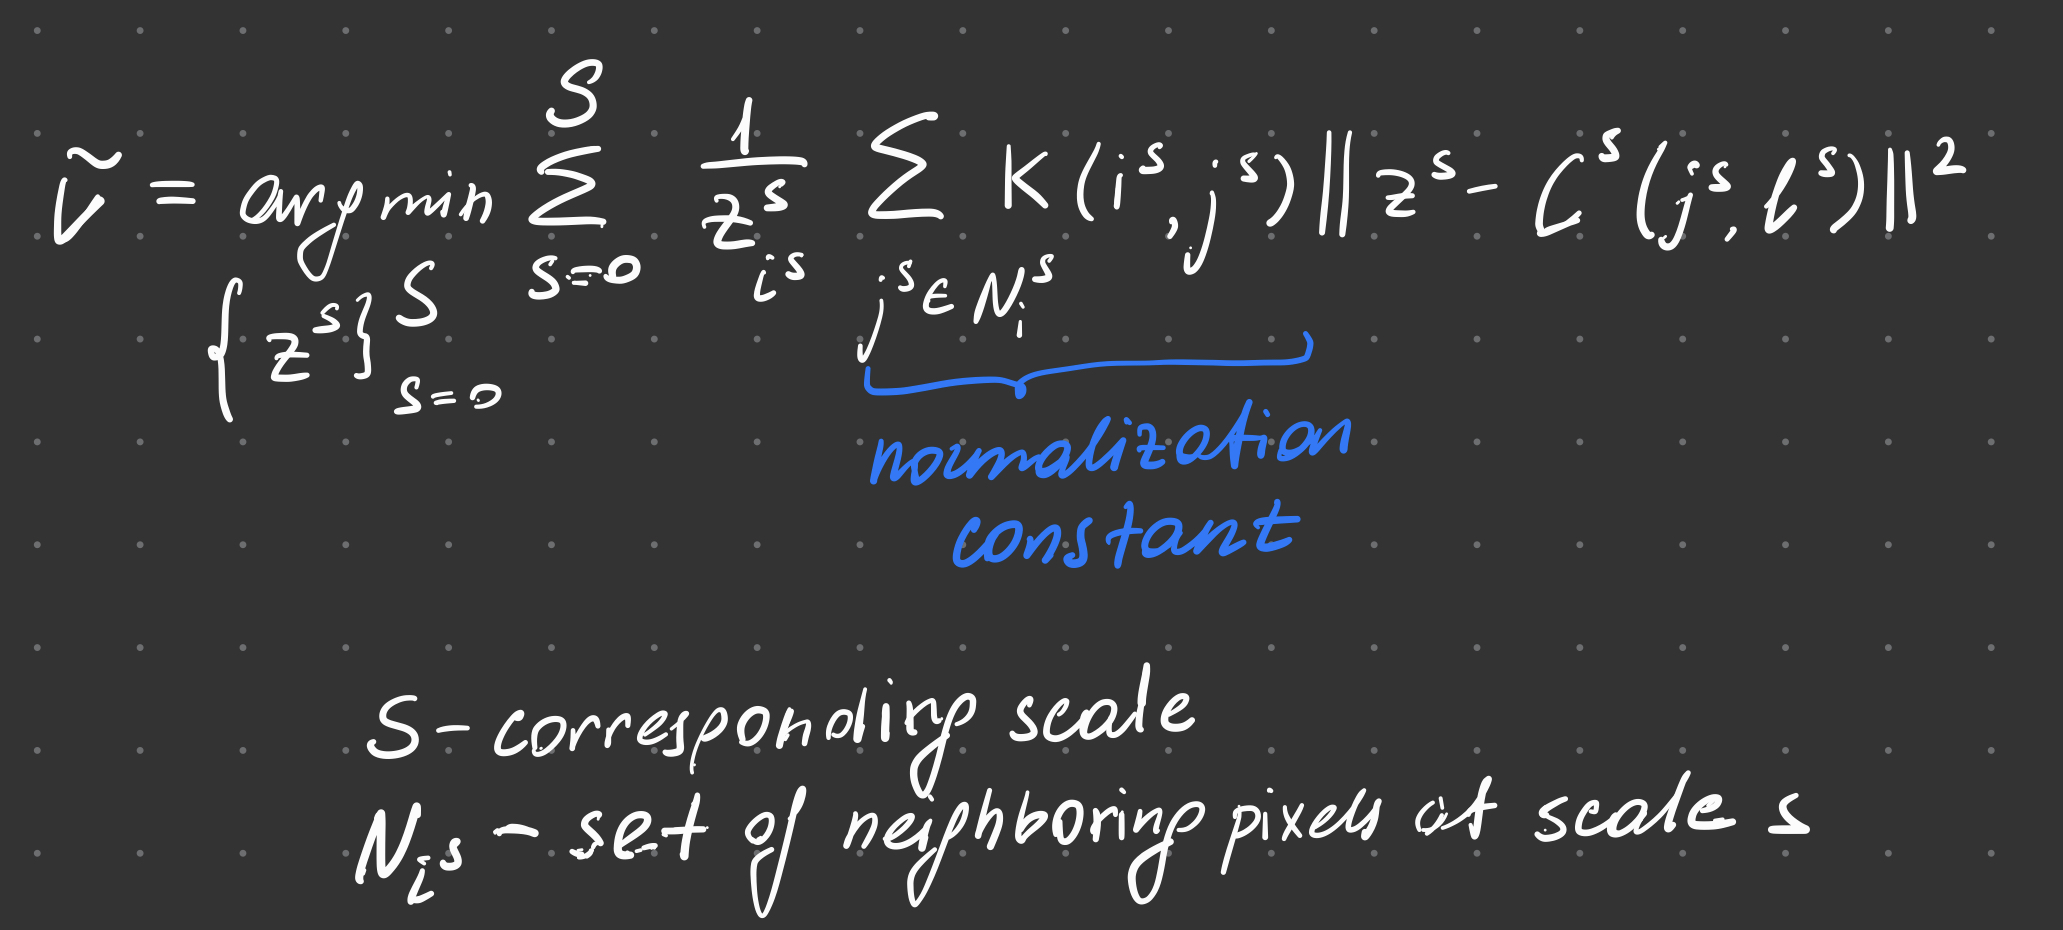 ṽ = arg min_{{z^s}_{s=0}^S} Σ_{s=0}^S 1/z^s_{i^s} Σ_{j^s ∈ N_i^s} K(i^s, j^s) ‖z^s - C^s(j^s, l^s)‖^2
normalization
constant
S - corresponding scale
N_{i^s} - set of neighboring pixels at scale s